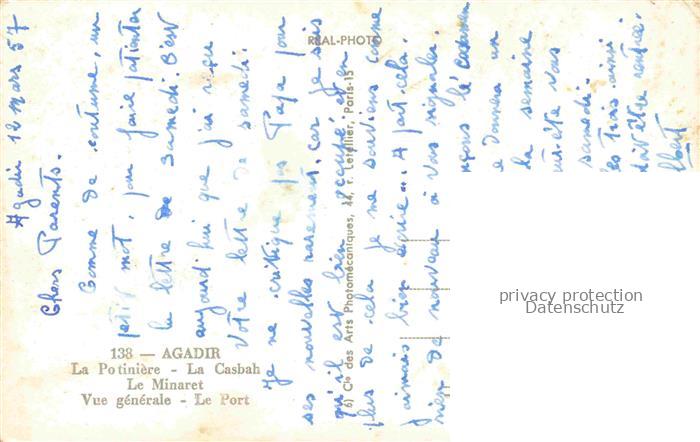 Agadir 12 mars 57
Chers Parents.
Comme de coutume, un
petit mot, pour faire patienter
la lettre de Samedi. C'est
aujourd'hui que j'ai reçu
votre lettre de samedi.
Je ne critique pas Papa pour
ses nouvelles rarement, car je sais
qu'il est bien occupé, et en
plus de cela, je me souviens comme
j'aimais bien écrire... A part cela,
rien de nouveau à vous signaler.
la semaine
vous
samedi.
ainsi
d'être rentré.
REAL-PHOTO
Cie des Arts Photomécaniques, 44, r. Letellier, Paris-15
138 — AGADIR
La Potinière - La Casbah
Le Minaret
Vue générale - Le Port
privacy protection
Datenschutz